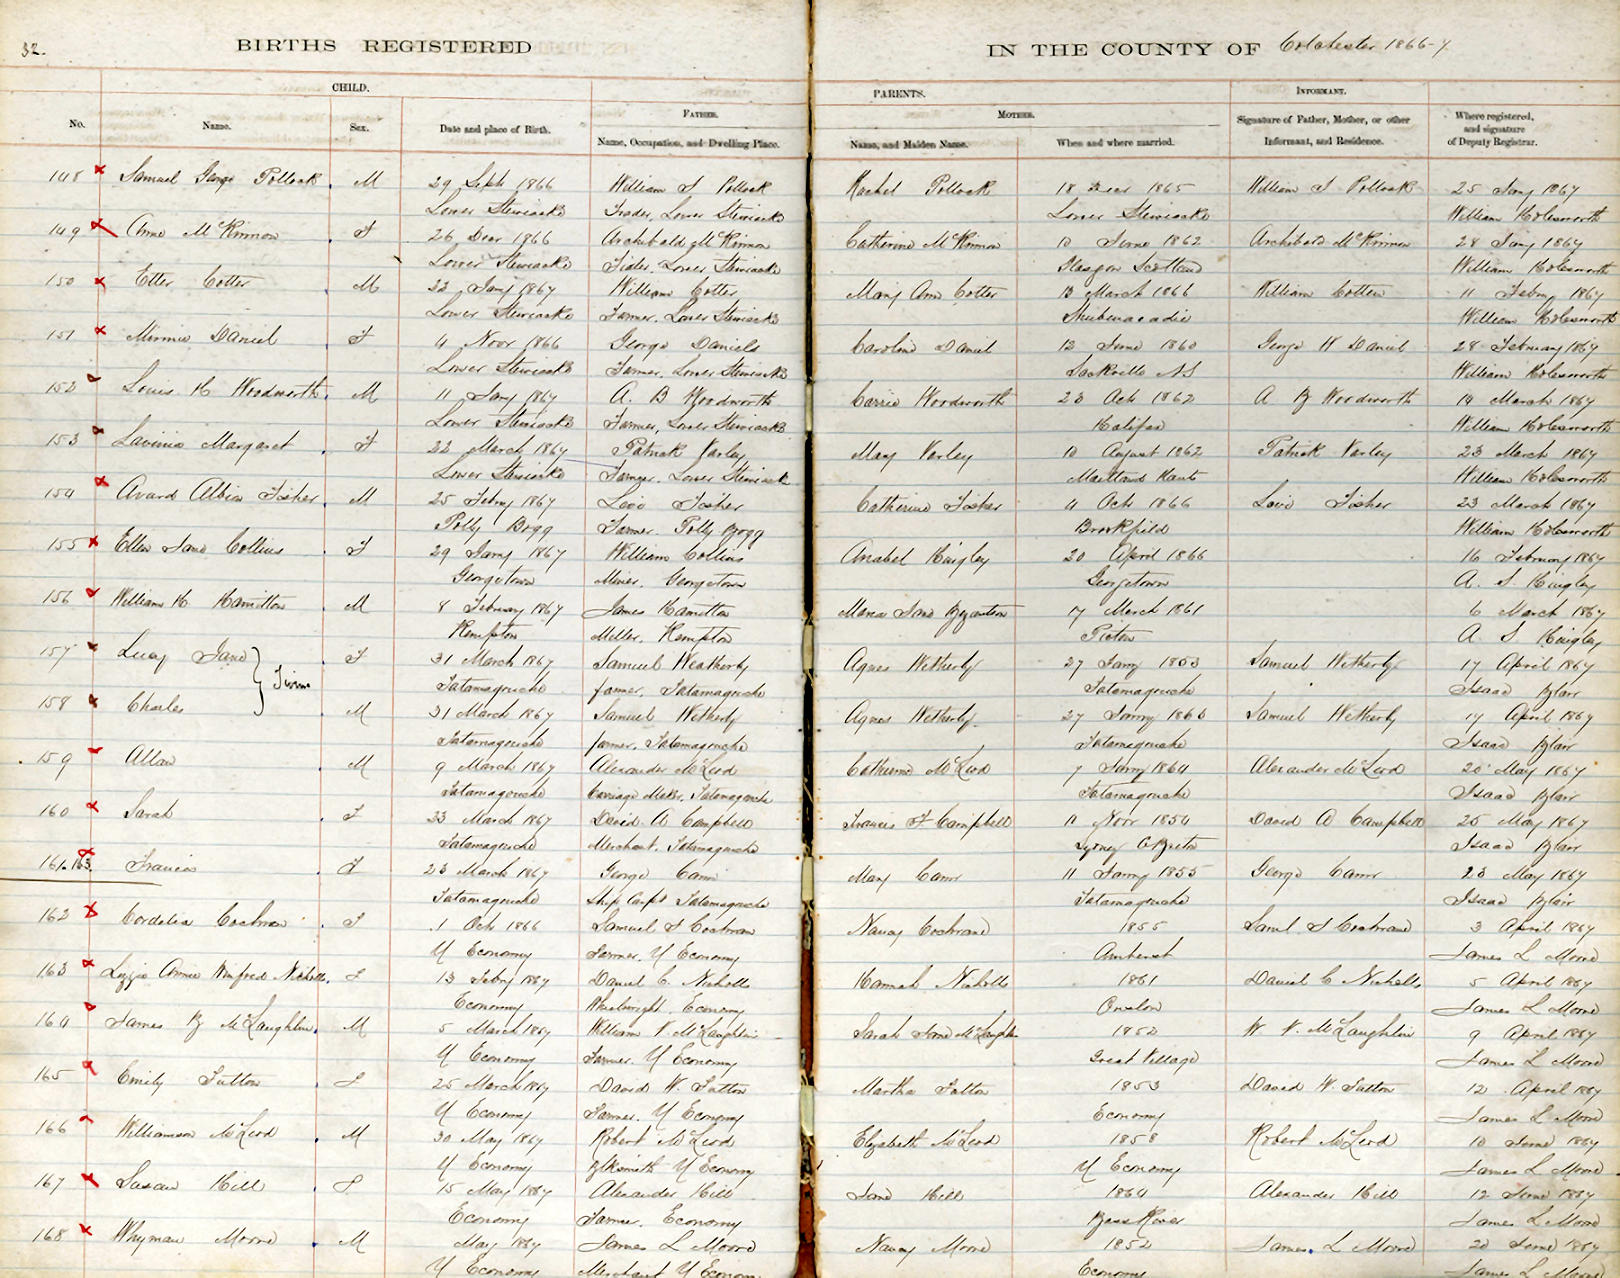 32.
BIRTHS REGISTERED IN THE COUNTY OF Colchester 1866-7
CHILD. PARENTS. INFORMANT.
No. Name. Sex. Date and place of Birth. FATHER. Name, Occupation, and Dwelling Place. MOTHER. Name, and Maiden Name. When and where married. Signature of Father, Mother, or other Informant, and Residence. Where registered, and signature of Deputy Registrar.
148 Samuel George Pollock M 29 Sept 1866 William S Pollock Rachel Pollock 18 1865 William S Pollock 25 Jany 1867
Lower Stewiacke Trader, Lower Stewiacke Lower Stewiacke William Holesworth
149 Anne McKinnon F 26 Decr 1866 Archibald McKinnon Catherine McKinnon 10 June 1862 Archibald McKinnon 28 Jany 1867
Lower Stewiacke Lower Stewiacke Glasgow Scotland William Holesworth
150 Etter Cotter M 22 Jany 1867 William Cotter Mary Ann Cotter 13 March 1866 William Cotter 11 Febry 1867
Lower Stewiacke Farmer, Lower Stewiacke Shubenacadie William Holesworth
151 Minnie Daniel F 4 Novr 1866 George Daniels Caroline Daniel 12 June 1860 George W Daniel 28 February 1867
Lower Stewiacke Farmer, Lower Stewiacke Sackville NS William Holesworth
152 Louis H Woodworth M 11 Jany 1867 A. B Woodworth Carrie Woodworth 23 Oct 1862 A B Woodworth 14 March 1867
Lower Stewiacke Farmer, Lower Stewiacke Halifax William Holesworth
153 Lavinia Margaret F 22 March 1867 Patrick Varley Mary Varley 10 August 1862 Patrick Varley 23 March 1867
Lower Stewiacke Farmer, Lower Stewiacke Maitland Hants William Holesworth
154 Avard Albion Fisher M 25 Febry 1867 Levi Fisher Catherine Fisher 4 Oct 1866 Levi Fisher 23 March 1867
Polly Bogg Farmer, Polly Bogg Brookfield William Holesworth
155 Ellen Jane Collins F 29 Jany 1867 William Collins Anabel Kingley 20 April 1866 16 February 1867
Georgetown Miner, Georgetown Georgetown A. S. Kingley
156 William H Hamilton M 8 February 1867 James Hamilton Maria Jane 17 March 1861 6 March 1867
Kempton Miller, Kempton Pictou A. S Kingley
157 Lucy Jane } Twins F 31 March 1867 Samuel Weatherby Agnes Wetherby 27 Jany 1853 Samuel Wetherby 17 April 1867
Tatamagouche farmer, Tatamagouche Tatamagouche Isaac Blair
158 Charles M 31 March 1867 Samuel Wetherby Agnes Wetherby 27 Jany 1853 Samuel Wetherby 17 April 1867
Tatamagouche farmer, Tatamagouche Tatamagouche Isaac Blair
159 Allan M 9 March 1867 Alexander McLeod Catherine McLeod 7 Jany 1864 Alexander McLeod 20 May 1867
Tatamagouche Carriage Maker, Tatamagouche Tatamagouche Isaac Blair
160 Sarah F 23 March 1867 David A Campbell Frances F Campbell 11 Novr 1854 David A Campbell 25 May 1867
Tatamagouche Merchant, Tatamagouche Sydney C Breton Isaac Blair
161.163. Francis F 23 March 1867 George Cann Mary Cann 11 Jany 1855 George Cann 23 May 1867
Tatamagouche Ship Carpt Tatamagouche Tatamagouche Isaac Blair
162 Cordelia Cochran F 1 Oct 1866 Samuel S Cochran Nancy Cochrane 1855 Saml S Cochrane 3 April 1867
U Economy Farmer, U Economy Amherst James L Moore
163 Lizzie Annie Winfred Nicholls F 13 Febry 1867 Daniel C. Nicholls Hannah Nicholls 1861 Daniel C Nicholls 5 April 1867
Economy Wheelwright, Economy Onslow James L Moore
164 James B McLaughlin M 5 March 1867 William V McLaughlin Sarah Jane McLaughlin 1852 W. V. McLaughlin 9 April 1867
U Economy Farmer, U Economy Great Village James L Moore
165 Emily Fulton F 25 March 1867 David W. Fulton Martha Fulton 1853 David W. Fulton 12 April 1867
U Economy Farmer, U Economy Economy James L Moore
166 Williamson McLeod M 30 May 1867 Robert McLeod Elizabeth McLeod 1858 Robert McLeod 10 June 1867
U Economy Blksmith U Economy U Economy James L Moore
167 Susan Hill F 15 May 1867 Alexander Hill Jane Hill 1864 Alexander Hill 12 June 1867
Economy Farmer, Economy Bass River James L Moore
168 Whyman Moore M May 1867 James L Moore Nancy Moore 1852 James L Moore 20 June 1867
U Economy Merchant U Economy Economy James L Moore